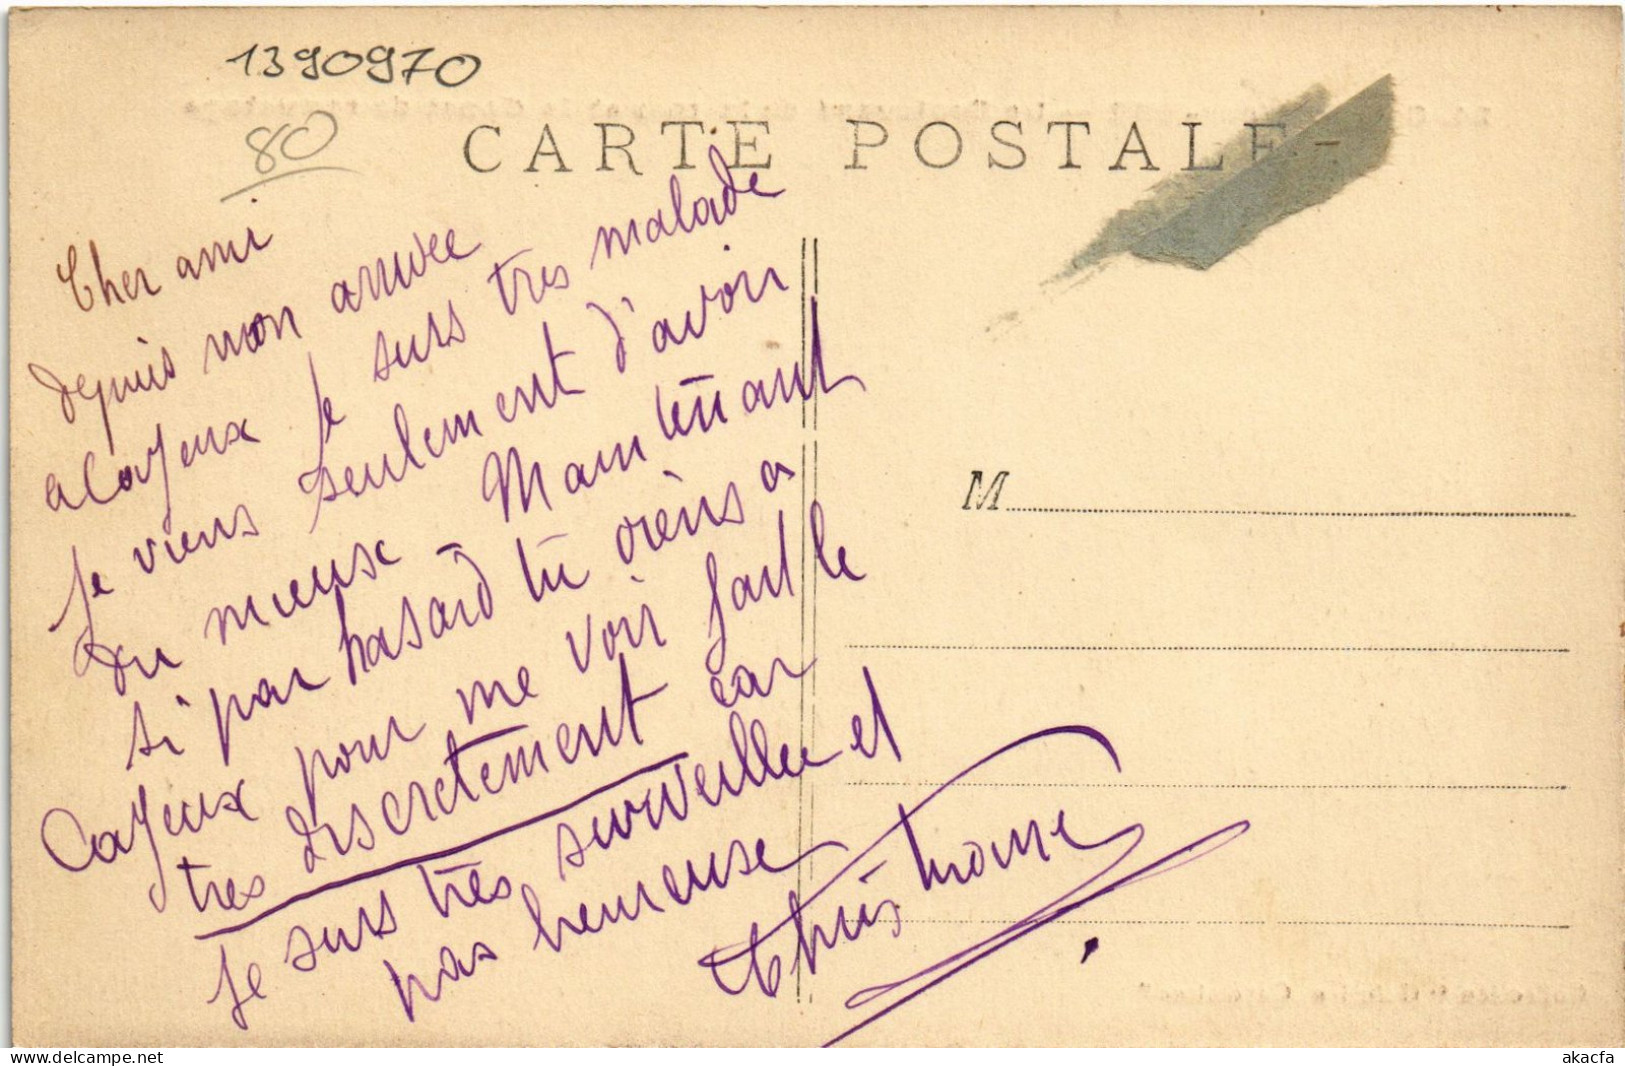 1390970
80
CARTE POSTALE
Cher ami
depuis mon arrivée
a Cayeux Je suis tres malade
Je viens seulement d'avoir
du mieux Maintenant
si par hasard tu viens a
Cayeux pour me voir fait le
tres discretement car
Je suis très surveillee et
pas heureuse
M
akacfa